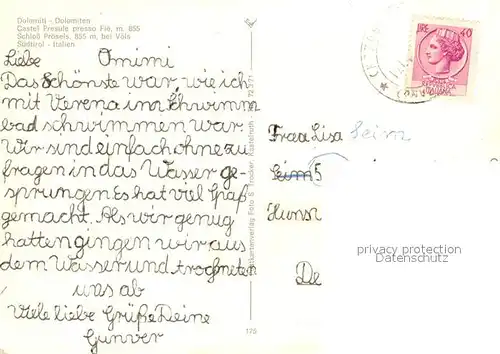 Dolomiti - Dolomiten
Castel Presule presso Fiè, m. 855
Schloß Prösels, 855 m, bei Völs
Südtirol - Italien
Liebe Omimi
Das Schönste war, wie ich
mit Verena im Schwimm
bad schwimmen war
Wir sind einfach ohne zu
fragen in das Wasser ge-
sprungen Es hat viel Spaß
gemacht. Als wir genug
hatten gingen wir aus
dem Wasser und trockneten
uns ab
Viele liebe Grüße Deine
Gunver
175
LIRE 40
Frau Lisa Seim
Seim 5
De
privacy protection
Datenschutz